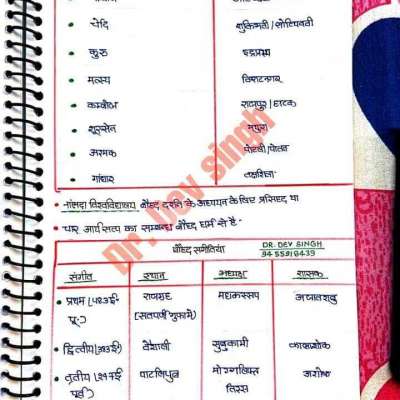 चेदि शुक्तिमती/सोत्थिवती
कुरु इन्द्रप्रस्थ
मत्स्य विराटनगर
कम्बोज राजापुर/हाटक
शूरसेन मथुरा
अश्मक पोटली/पोतन
गांधार तक्षशिला
नालंदा विश्वविद्यालय बौद्ध दर्शन के अध्ययन के लिए प्रसिद्ध था
चार आर्यसत्य का सम्बन्ध बौद्ध धर्म से है
बौद्ध संगीतिया DR. DEV SINGH
94 55916439
संगीत स्थान अध्यक्ष शासक
प्रथम (483ई. राजगृह महाकस्सप अजातशत्रु
पू.) [सतपर्णी गुफामे]
द्वितीय(383ई) वैशाली सुबुकामी कालाशोक
तृतीय (247ई पाटलिपुत्र मोग्गलिपुत्त अशोक
पूर्व) तिस्स
Dr. Dev singh